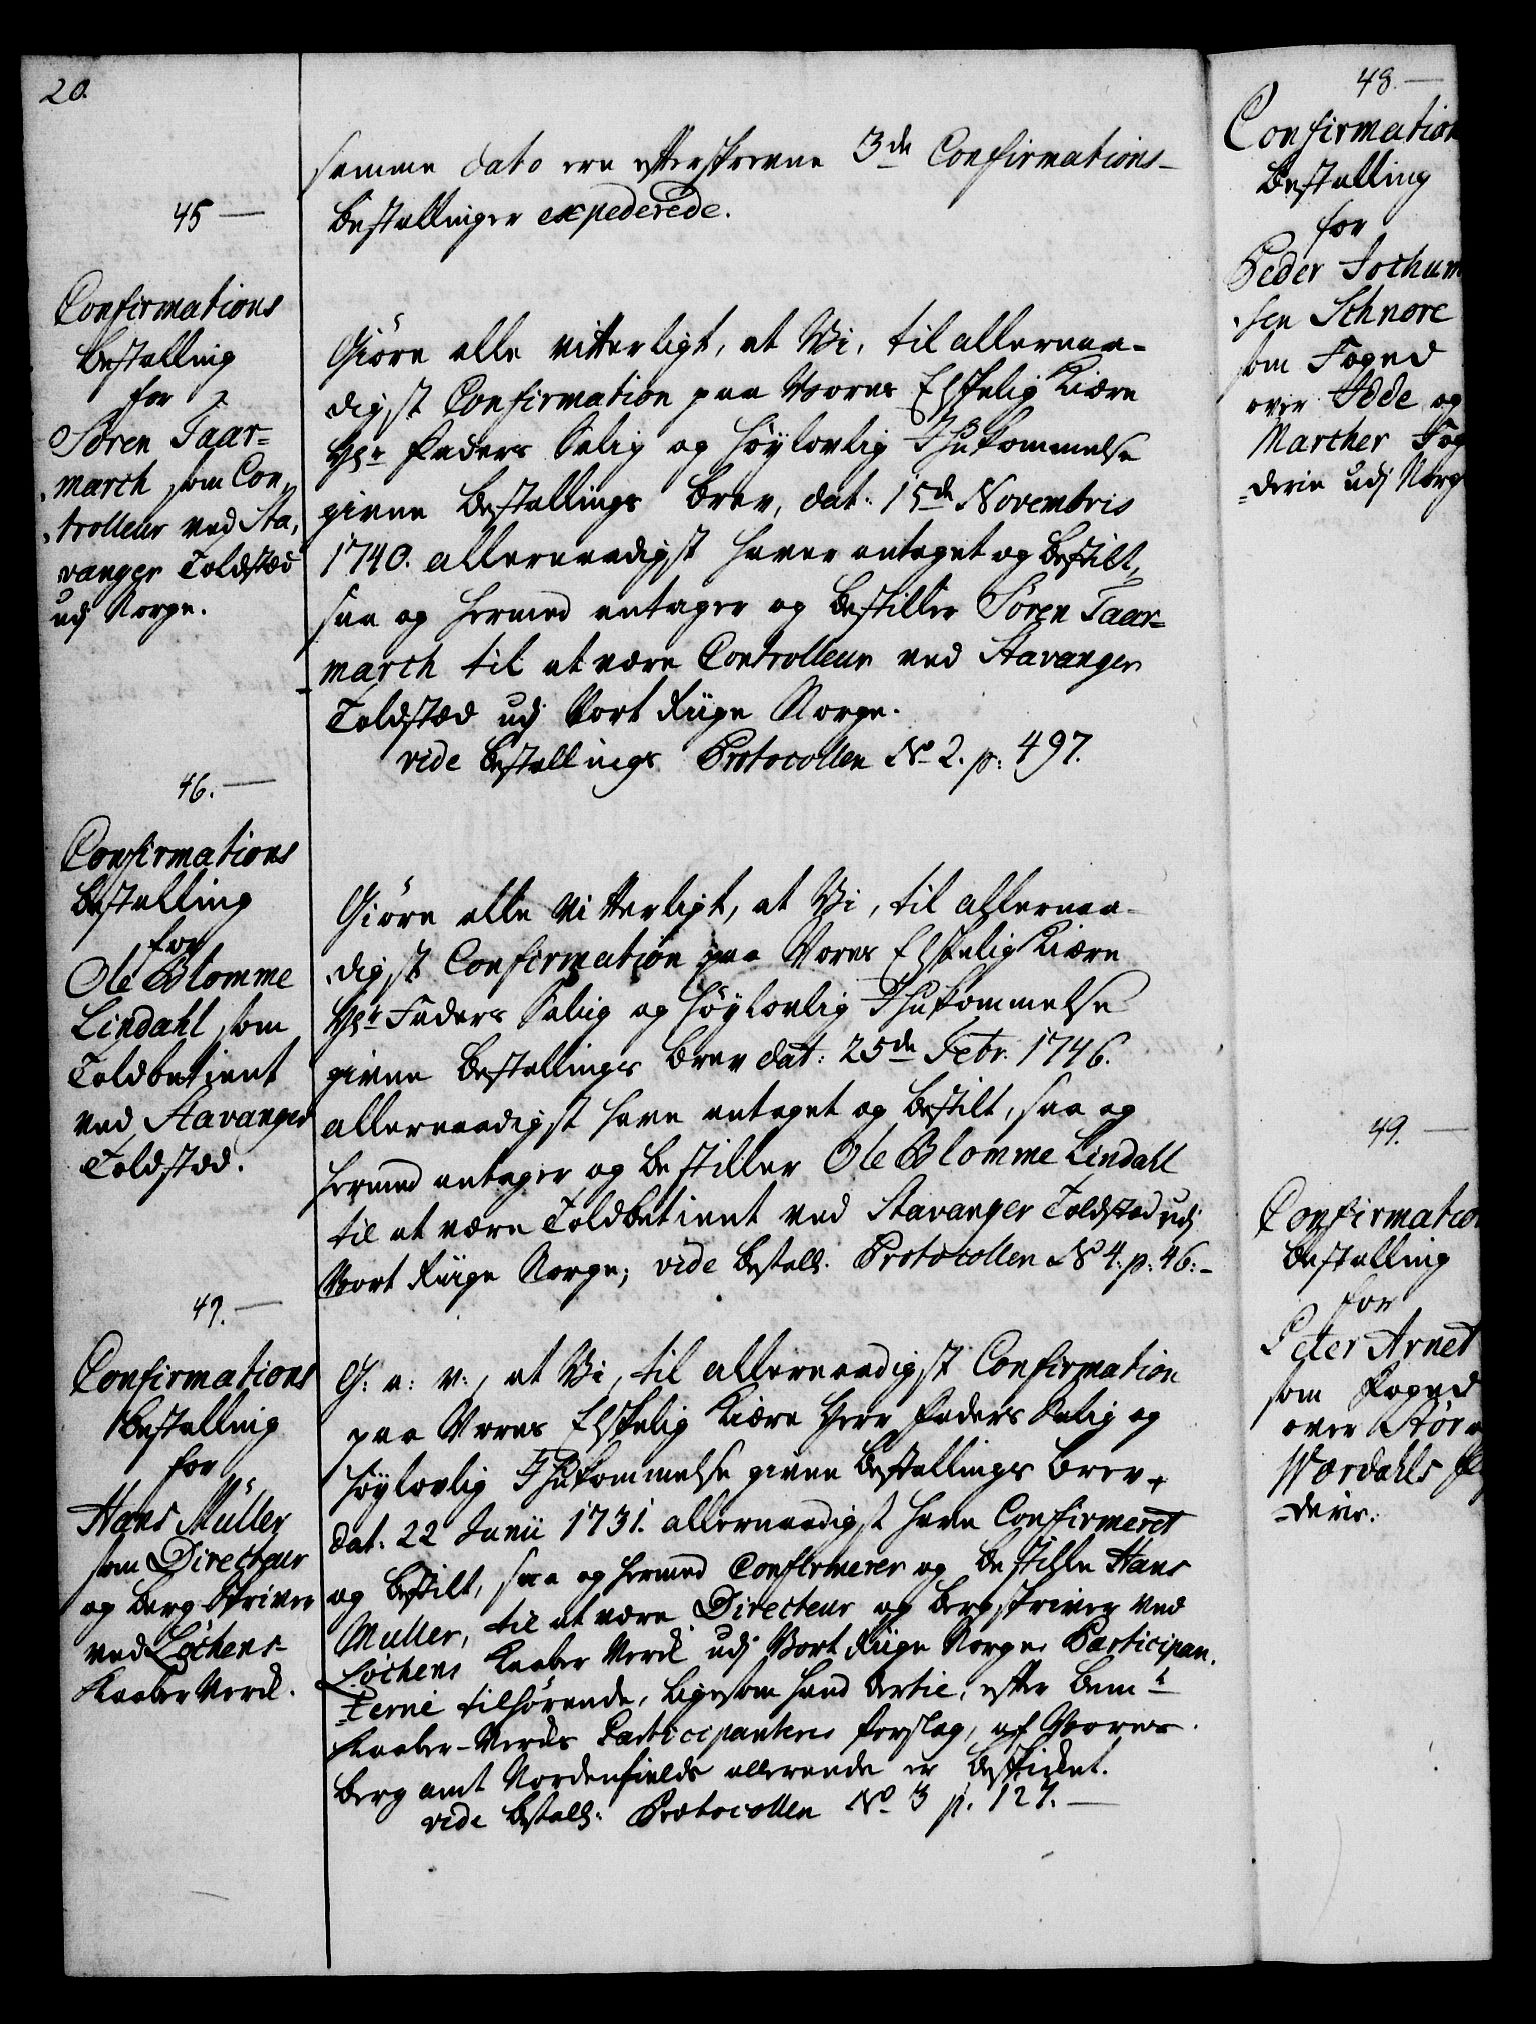 20.
samme dato ere efterskrevne 3de Confirmations-
Bestallinger expederede.
45 —
Confirmations
Bestalling
for
Søren Taar=
march som Con,,
trolleur ved Sta,,
vanger Toldstæd
udj Norge.
Giöre alle vitterligt, at Vi, til allernaa-
digst Confirmation paa Vores Elskelig Kiære
Hr Faders Salig og Höylovlig Ihukommelse
givne Bestallings Brev, dat: 15de Novembris
1740. allernaadigst haver antaget og bestilt,
saa og hermed antager og bestiller Sören Taar=
march til at være Controlleur ved Stavanger
Toldstæd udj Vort Riige Norge.
vide Bestallings Protocollen No 2. p: 497.
46. —
Confirmations
Bestalling
for
Ole Blomme
Lindahl som
Toldbetient
ved Stavanger
Toldstæd.
Giöre alle vitterligt, at Vi, til allernaa-
digst Confirmation paa Vores Elskelig Kiære
Hr Faders Salig og Höylovlig Ihukommelse
givne Bestallings Brev dat: 25de Febr. 1746.
allernaadigst have antaget og bestilt, saa og
hermed antager og bestiller Ole Blomme Lindahl
til at være Toldbetient ved Stavanger Toldstæd udj
Vort Riige Norge; vide Bestall: Protocollen No 4. p: 46:-
47. —
Confirmations
Bestalling
for
Hans Müller
som Directeur
og Berg Skriver
ved Løchens
Kaaber Verck.
G: a: v:, at Vi, til allernaadigst Confirmation
paa Vores Elskelig Kiære Herr Faders Salig og
Höylovlig Ihukommelse givne Bestallings Brev,
dat: 22 Junii 1731. allernaadigst have Confirmeret
og bestilt, saa og hermed Confirmerer og bestille Hans
Müller, til at være Directeur og Bergskriver ved
Løchens Kaaber Verck udj Vort Riige Norge Participan,,
terne tilhörende, ligesom hand dertil, efter bemte
Kaaber-Vercks Participanteres forslag, af Vores
Berg amt Nordenfields allerede er beskicket.
vide Bestall: Protocollen No 3 p. 127. —
48. —
Confirmation
Bestalling
for
Peder Jochum
sen Schnore
som Foged
over Idde og
Marcher Fog
=derie udj Norg
49. —
Confirmation
Bestalling
for
Peter Arnet
som Foged
over Stör
Wærdahls
=derie.